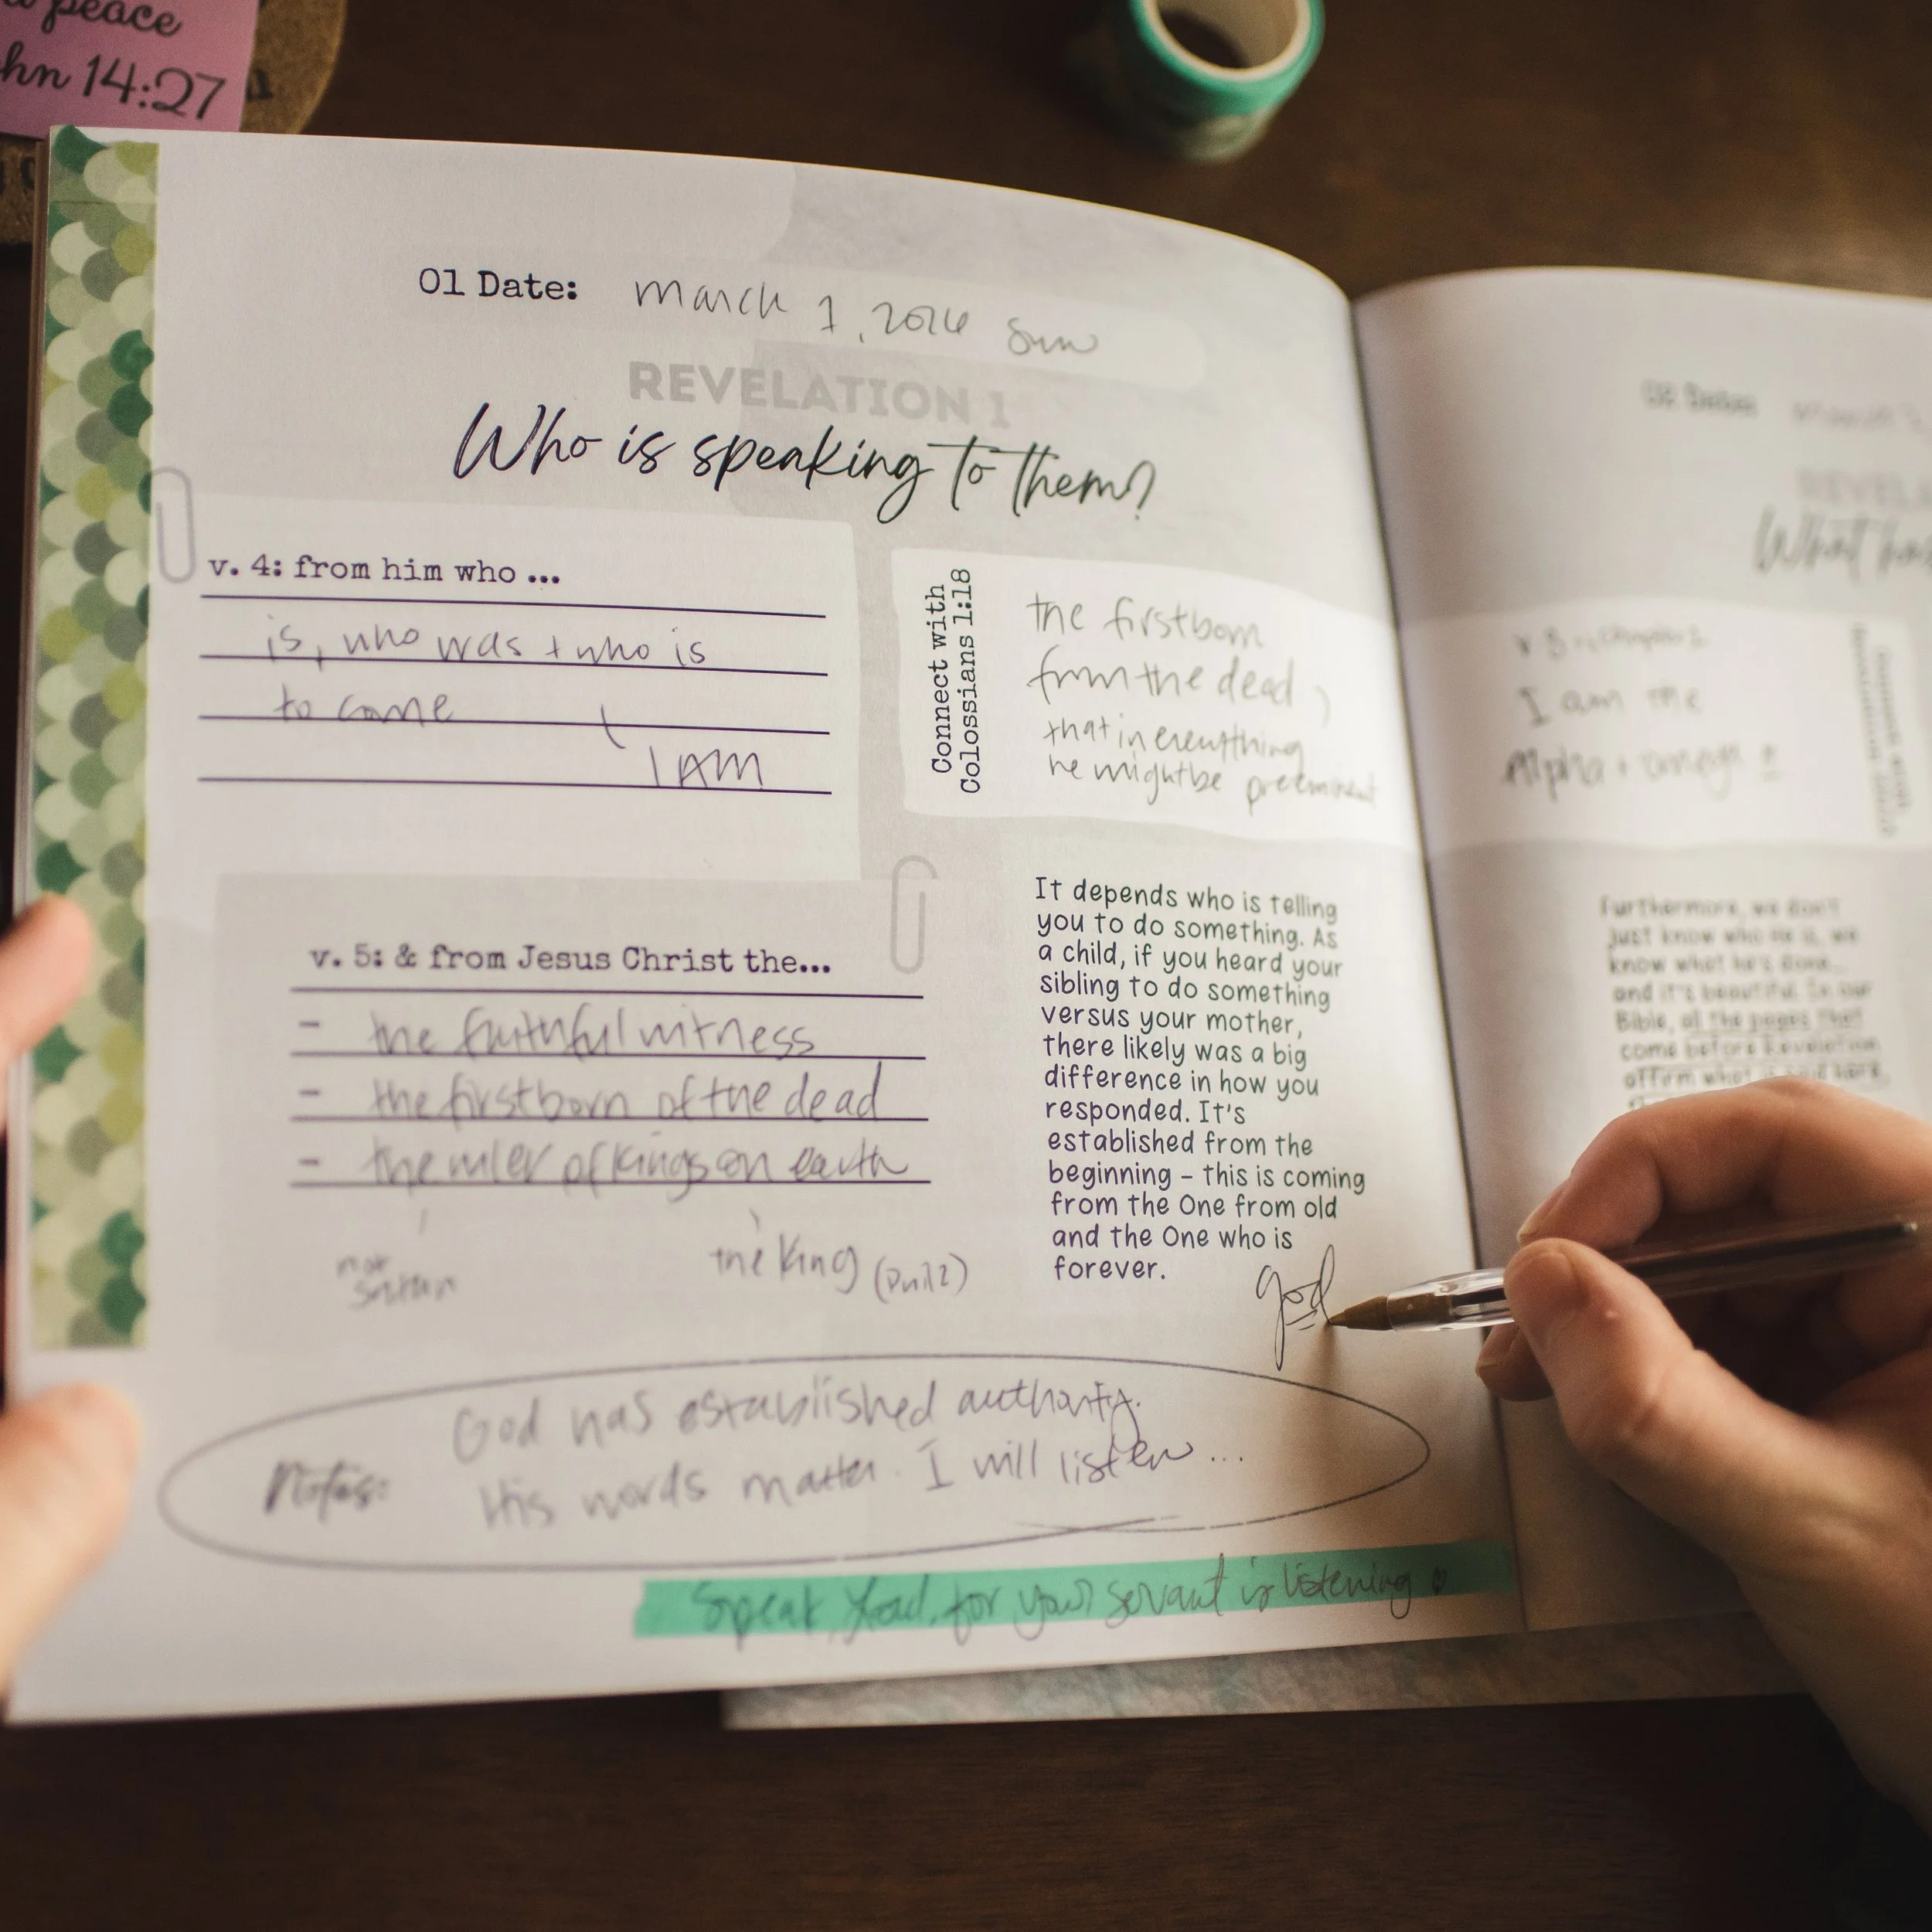 peace
hn 14:27
01 Date: March 1, 2026 Sun
REVELATION 1
Who is speaking to them?
v. 4: from him who ...
is, who was + who is
to come
I AM
Connect with
Colossians 1:18
the firstborn
from the dead,
that in everything
he might be preeminent
v. 5: & from Jesus Christ the...
- the faithful witness
- the firstborn of the dead
- the ruler of kings on earth
not
satan
the King (Phil 2)
It depends who is telling
you to do something. As
a child, if you heard your
sibling to do something
versus your mother,
there likely was a big
difference in how you
responded. It's
established from the
beginning – this is coming
from the One from old
and the One who is
forever.
God
Notes:
God has established authority.
His words matter. I will listen...
Speak, Lord, for your servant is listening
02 Date:
REVELA
What has
I am the
Alpha + Omega
Furthermore, we don't
just know who He is, we
know what he's done...
and it's beautiful. In our
Bible, all the pages that
come before Revelation
affirm what is said here.